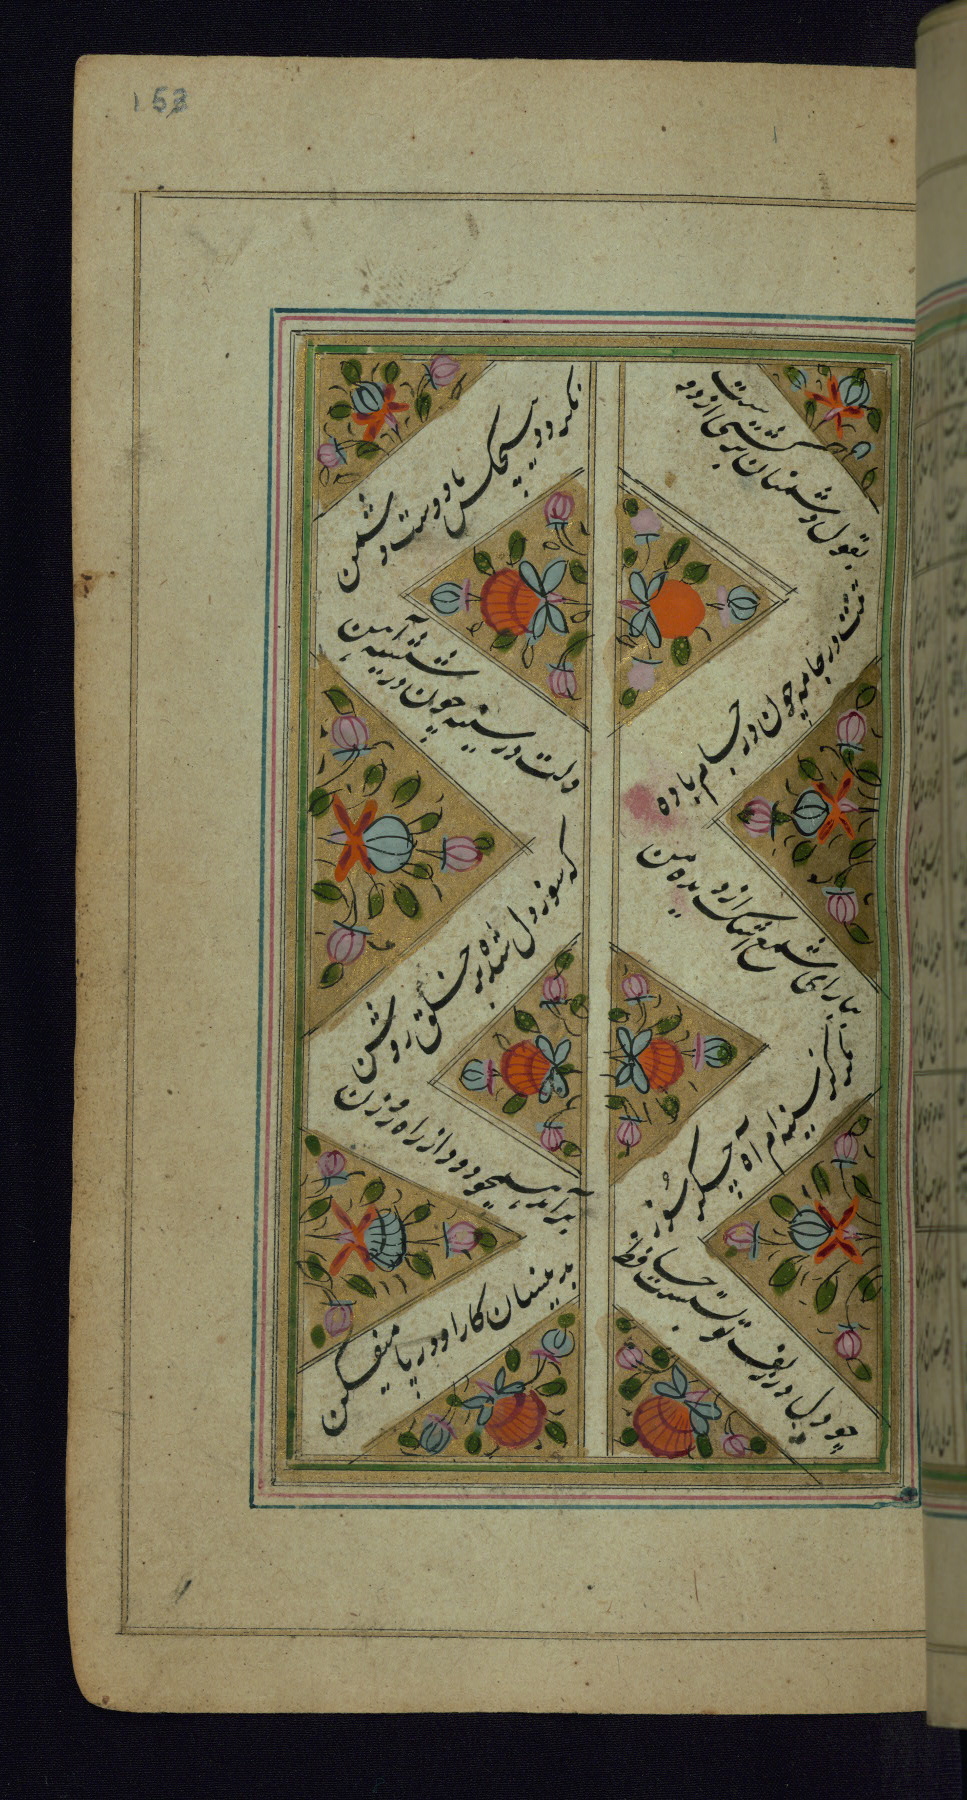 153
بقول دشمنان برگشتی از دوست
نکردد هیچکس با دوست دشمن
تنت در جامه چون در جام باده
دلت در سینه چون در شیشه آهن
ببار ای شمع اشک از دیده من
که سوز دل شده بر خلق روشن
کز سینه ام آه جگر سوز
برآید همچو دود از راه روزن
چو دل در زلف تو بستست حافظ
بدینسان کار او در پا میفکن